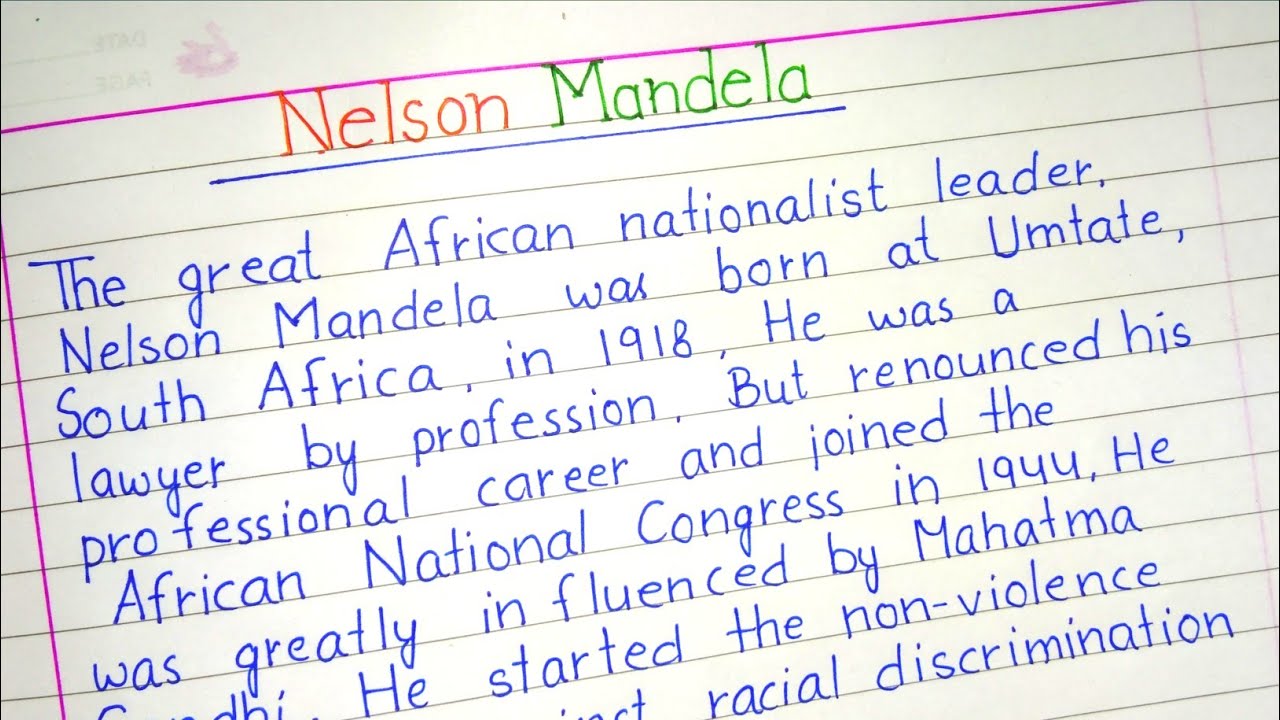 DATE
PAGE
Nelson Mandela
The great African nationalist leader.
Nelson Mandela was born at Umtate,
South Africa, in 1918, He was a
lawyer by profession. But renounced his
professional career and joined the
African National Congress in 1944, He
was greatly influenced by Mahatma
Gandhi. He started the non-violence
racial discrimination